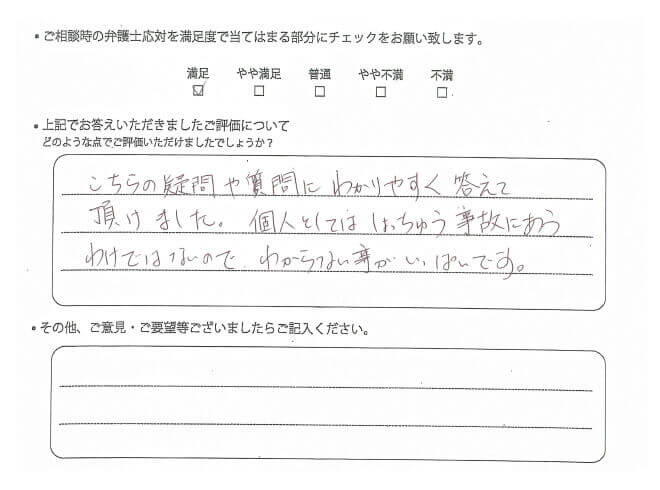 ・ご相談時の弁護士応対を満足度で当てはまる部分にチェックをお願い致します。
満足 やや満足 普通 やや不満 不満
☑ □ □ □ □
・上記でお答えいただきましたご評価について
どのような点でご評価いただけましたでしょうか？
こちらの疑問や質問に わかりやすく 答えて
頂けました。個人としては しょっちゅう 事故にあう
わけではないので、わからない事がいっぱいです。
・その他、ご意見・ご要望等ございましたらご記入ください。